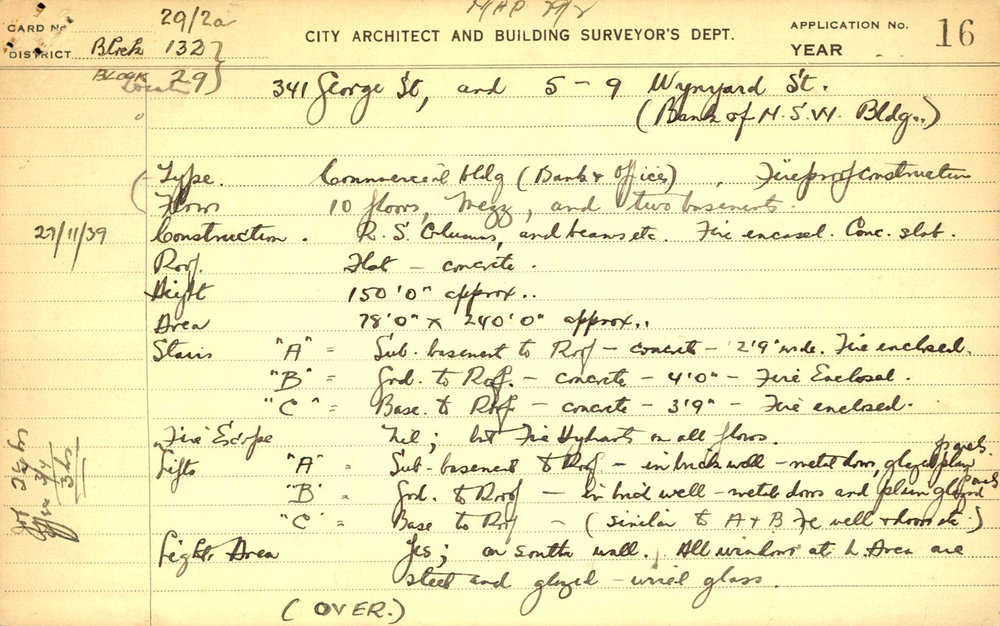 MAP 29/2
CARD No 29/2a
CITY ARCHITECT AND BUILDING SURVEYOR'S DEPT.
APPLICATION No.
16
DISTRICT Block 132
YEAR
BLOCK 29
341 George St, and 5 - 9 Wynyard St.
(Bank of N.S.W. Bldg..)
Type. Commercial bldg (Bank & Offices), Fireproof construction
Floors 10 floors, Mezz, and two basements.
27/11/39 Construction. R.S. Columns, and beams etc. Fire encased. Conc. slab.
Roof. Flat - concrete.
Height 150'0" approx..
Area 78'0" x 240'0" approx..
Stairs "A" = Sub. basement to Roof - concrete - 2'9" wide. Fire enclosed.
"B" = Grd. to Roof. - concrete - 4'0" - Fire Enclosed.
"C" = Base. to Roof. - concrete - 3'9" - Fire enclosed.
Fire Escape Nil; but Fire Hydrants on all floors.
Lifts "A" = Sub-basement to Roof - in brick well - metal doors, glazed plain panels.
"B" = Grd. to Roof - in brick well - metal doors and plain glazed panels
"C" = Base to Roof - (similar to A & B re well & doors etc.)
Light Area Yes; on south wall. All windows at L. Area are
steel and glazed - wired glass.
(OVER.)
3/4
3 hrs